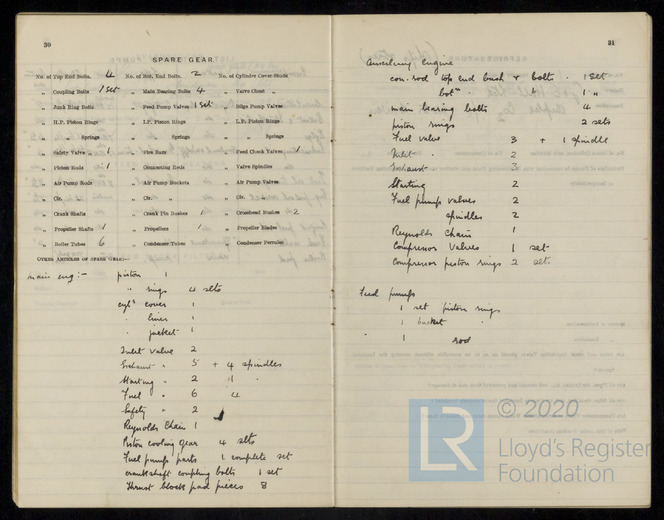 30
SPARE GEAR.
No. of Top End Bolts. 4 No. of Bot. End Bolts. 2 No. of Cylinder Cover Studs
„ Coupling Bolts 1 set „ Main Bearing Bolts 4 „ Valve Chest „
„ Junk Ring Bolts „ Feed Pump Valves 1 set „ Bilge Pump Valves
„ H.P. Piston Rings „ I.P. Piston Rings „ L.P. Piston Rings
„ „ Springs „ „ Springs „ „ Springs
„ Safety Valve „ 1 „ Fire Bars „ Feed Check Valves 1
„ Piston Rods 1 „ Connecting Rods „ Valve Spindles
„ Air Pump Rods „ Air Pump Buckets „ Air Pump Valves
„ Cir. „ „ Cir. „ „ Cir. „
„ Crank Shafts „ Crank Pin Bushes 1 „ Crosshead Bushes 2
„ Propeller Shafts 1 „ Propellers 1 „ Propeller Blades
„ Boiler Tubes 6 „ Condenser Tubes „ Condenser Ferrules
OTHER ARTICLES OF SPARE GEAR:—
main eng:- piston 1
„ rings 4 sets
cylr cover 1
„ liner 1
„ jacket 1
Inlet valve 2
Exhaust „ 5 + 4 spindles
Starting „ 2 „ „
Fuel „ 6 4
Safety „ 2
Reynolds Chain 1
Piston cooling gear 4 sets
Fuel pump parts 1 complete set
crankshaft coupling bolts 1 set
Thrust block pad pieces 8
31
Auxiliary engine
con. rod top end bush + bolts . 1 set
botm „ „ 1 „
main bearing bolts 4
piston rings 2 sets
Fuel valve 3 + 1 spindle
Inlet . 2
Exhaust 3
Starting 2
Fuel pump valves 2
spindles 2
Reynolds Chain 1
Compressor Valves 1 set
Compressor piston rings 2 set.
Feed pumps
1 set piston rings
1 bucket „
1 rod
© 2020
LR Lloyd's Register
Foundation